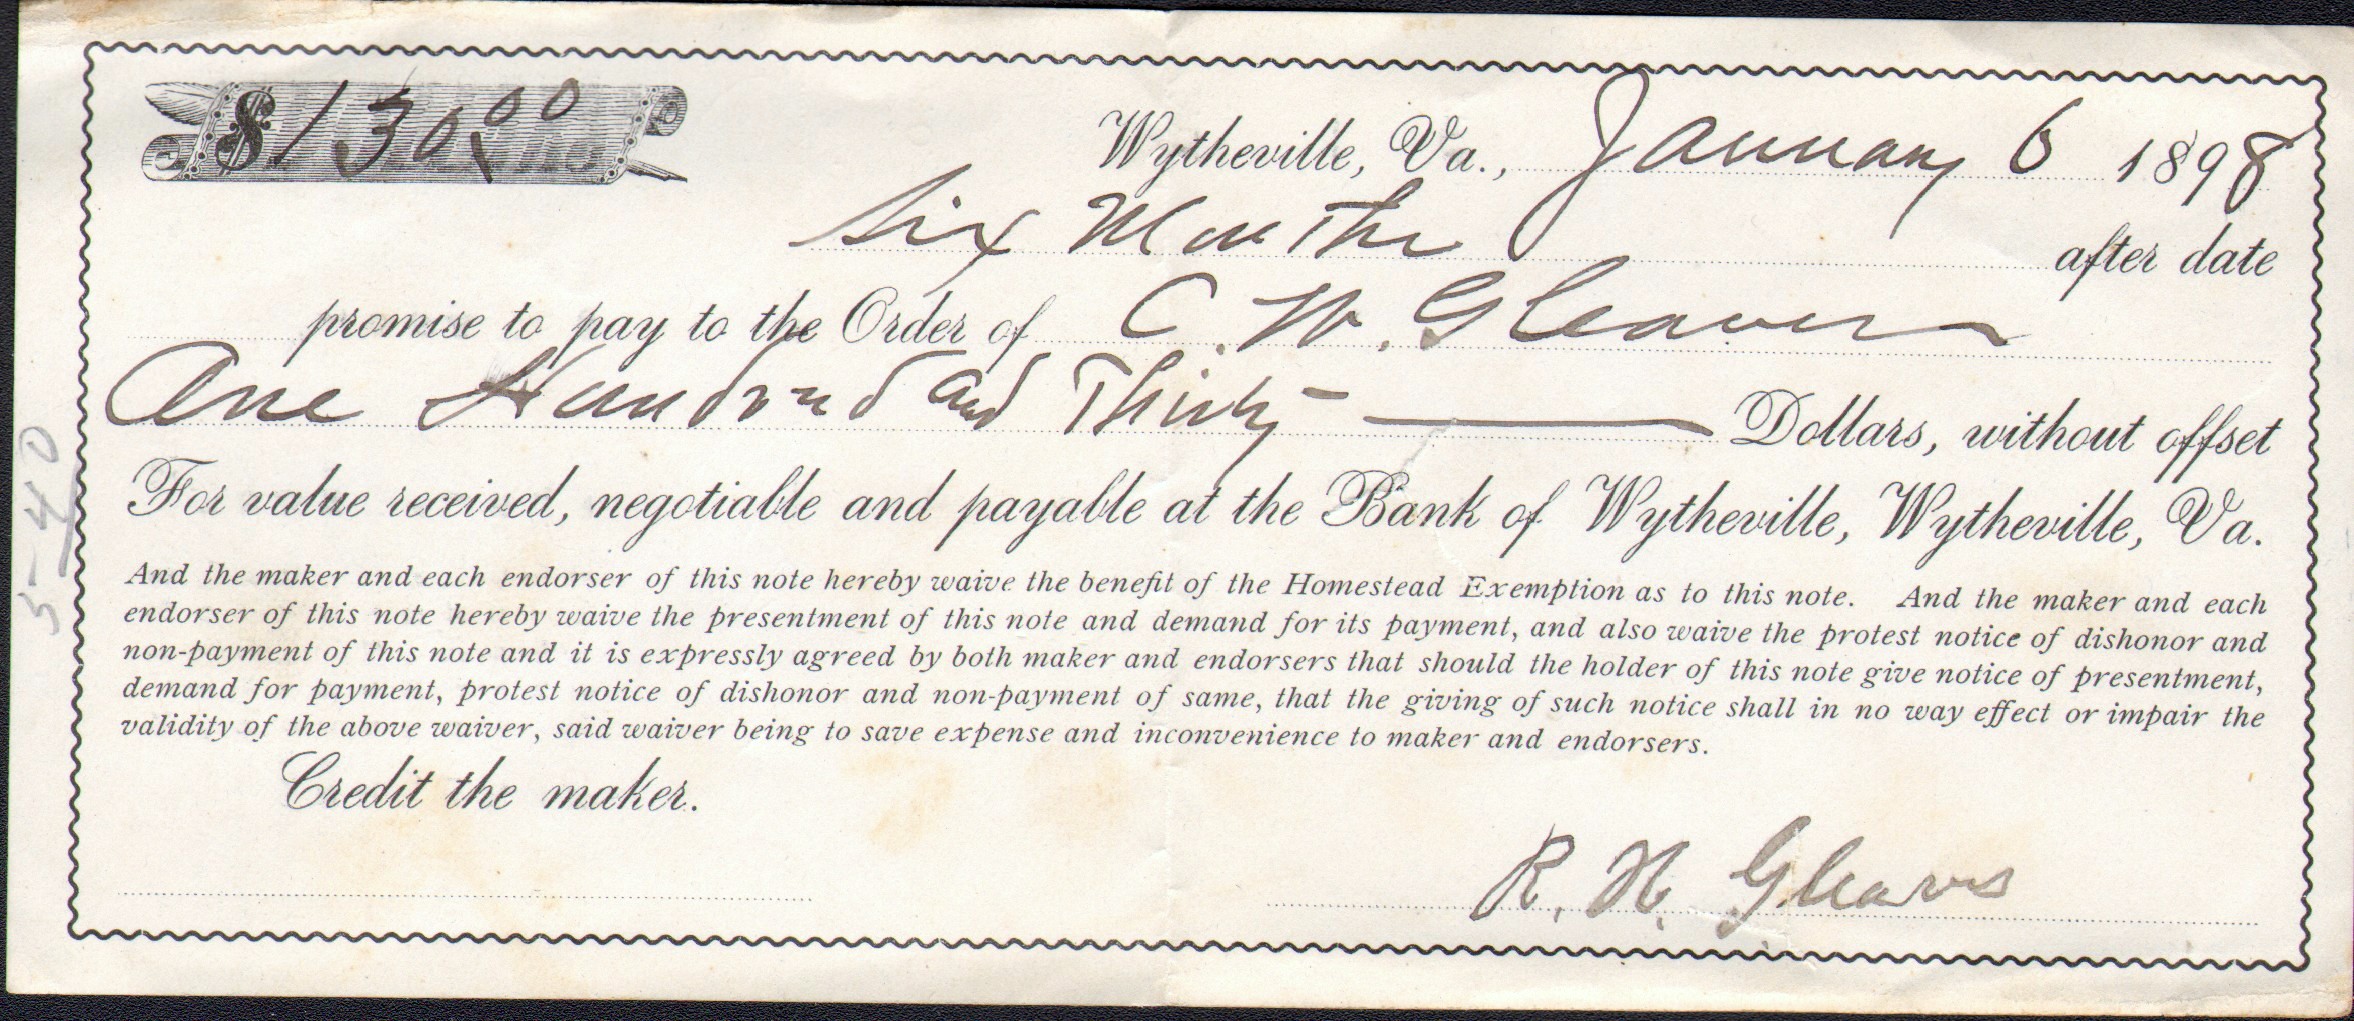 $ 130.00
Wytheville, Va., January 6 1898
Six Months after date
promise to pay to the Order of C. W. Gleaves
One Hundred and Thirty Dollars, without offset
For value received, negotiable and payable at the Bank of Wytheville, Wytheville, Va.
And the maker and each endorser of this note hereby waive the benefit of the Homestead Exemption as to this note. And the maker and each
endorser of this note hereby waive the presentment of this note and demand for its payment, and also waive the protest notice of dishonor and
non-payment of this note and it is expressly agreed by both maker and endorsers that should the holder of this note give notice of presentment,
demand for payment, protest notice of dishonor and non-payment of same, that the giving of such notice shall in no way effect or impair the
validity of the above waiver, said waiver being to save expense and inconvenience to maker and endorsers.
Credit the maker.
R. H. Gleaves
5-40